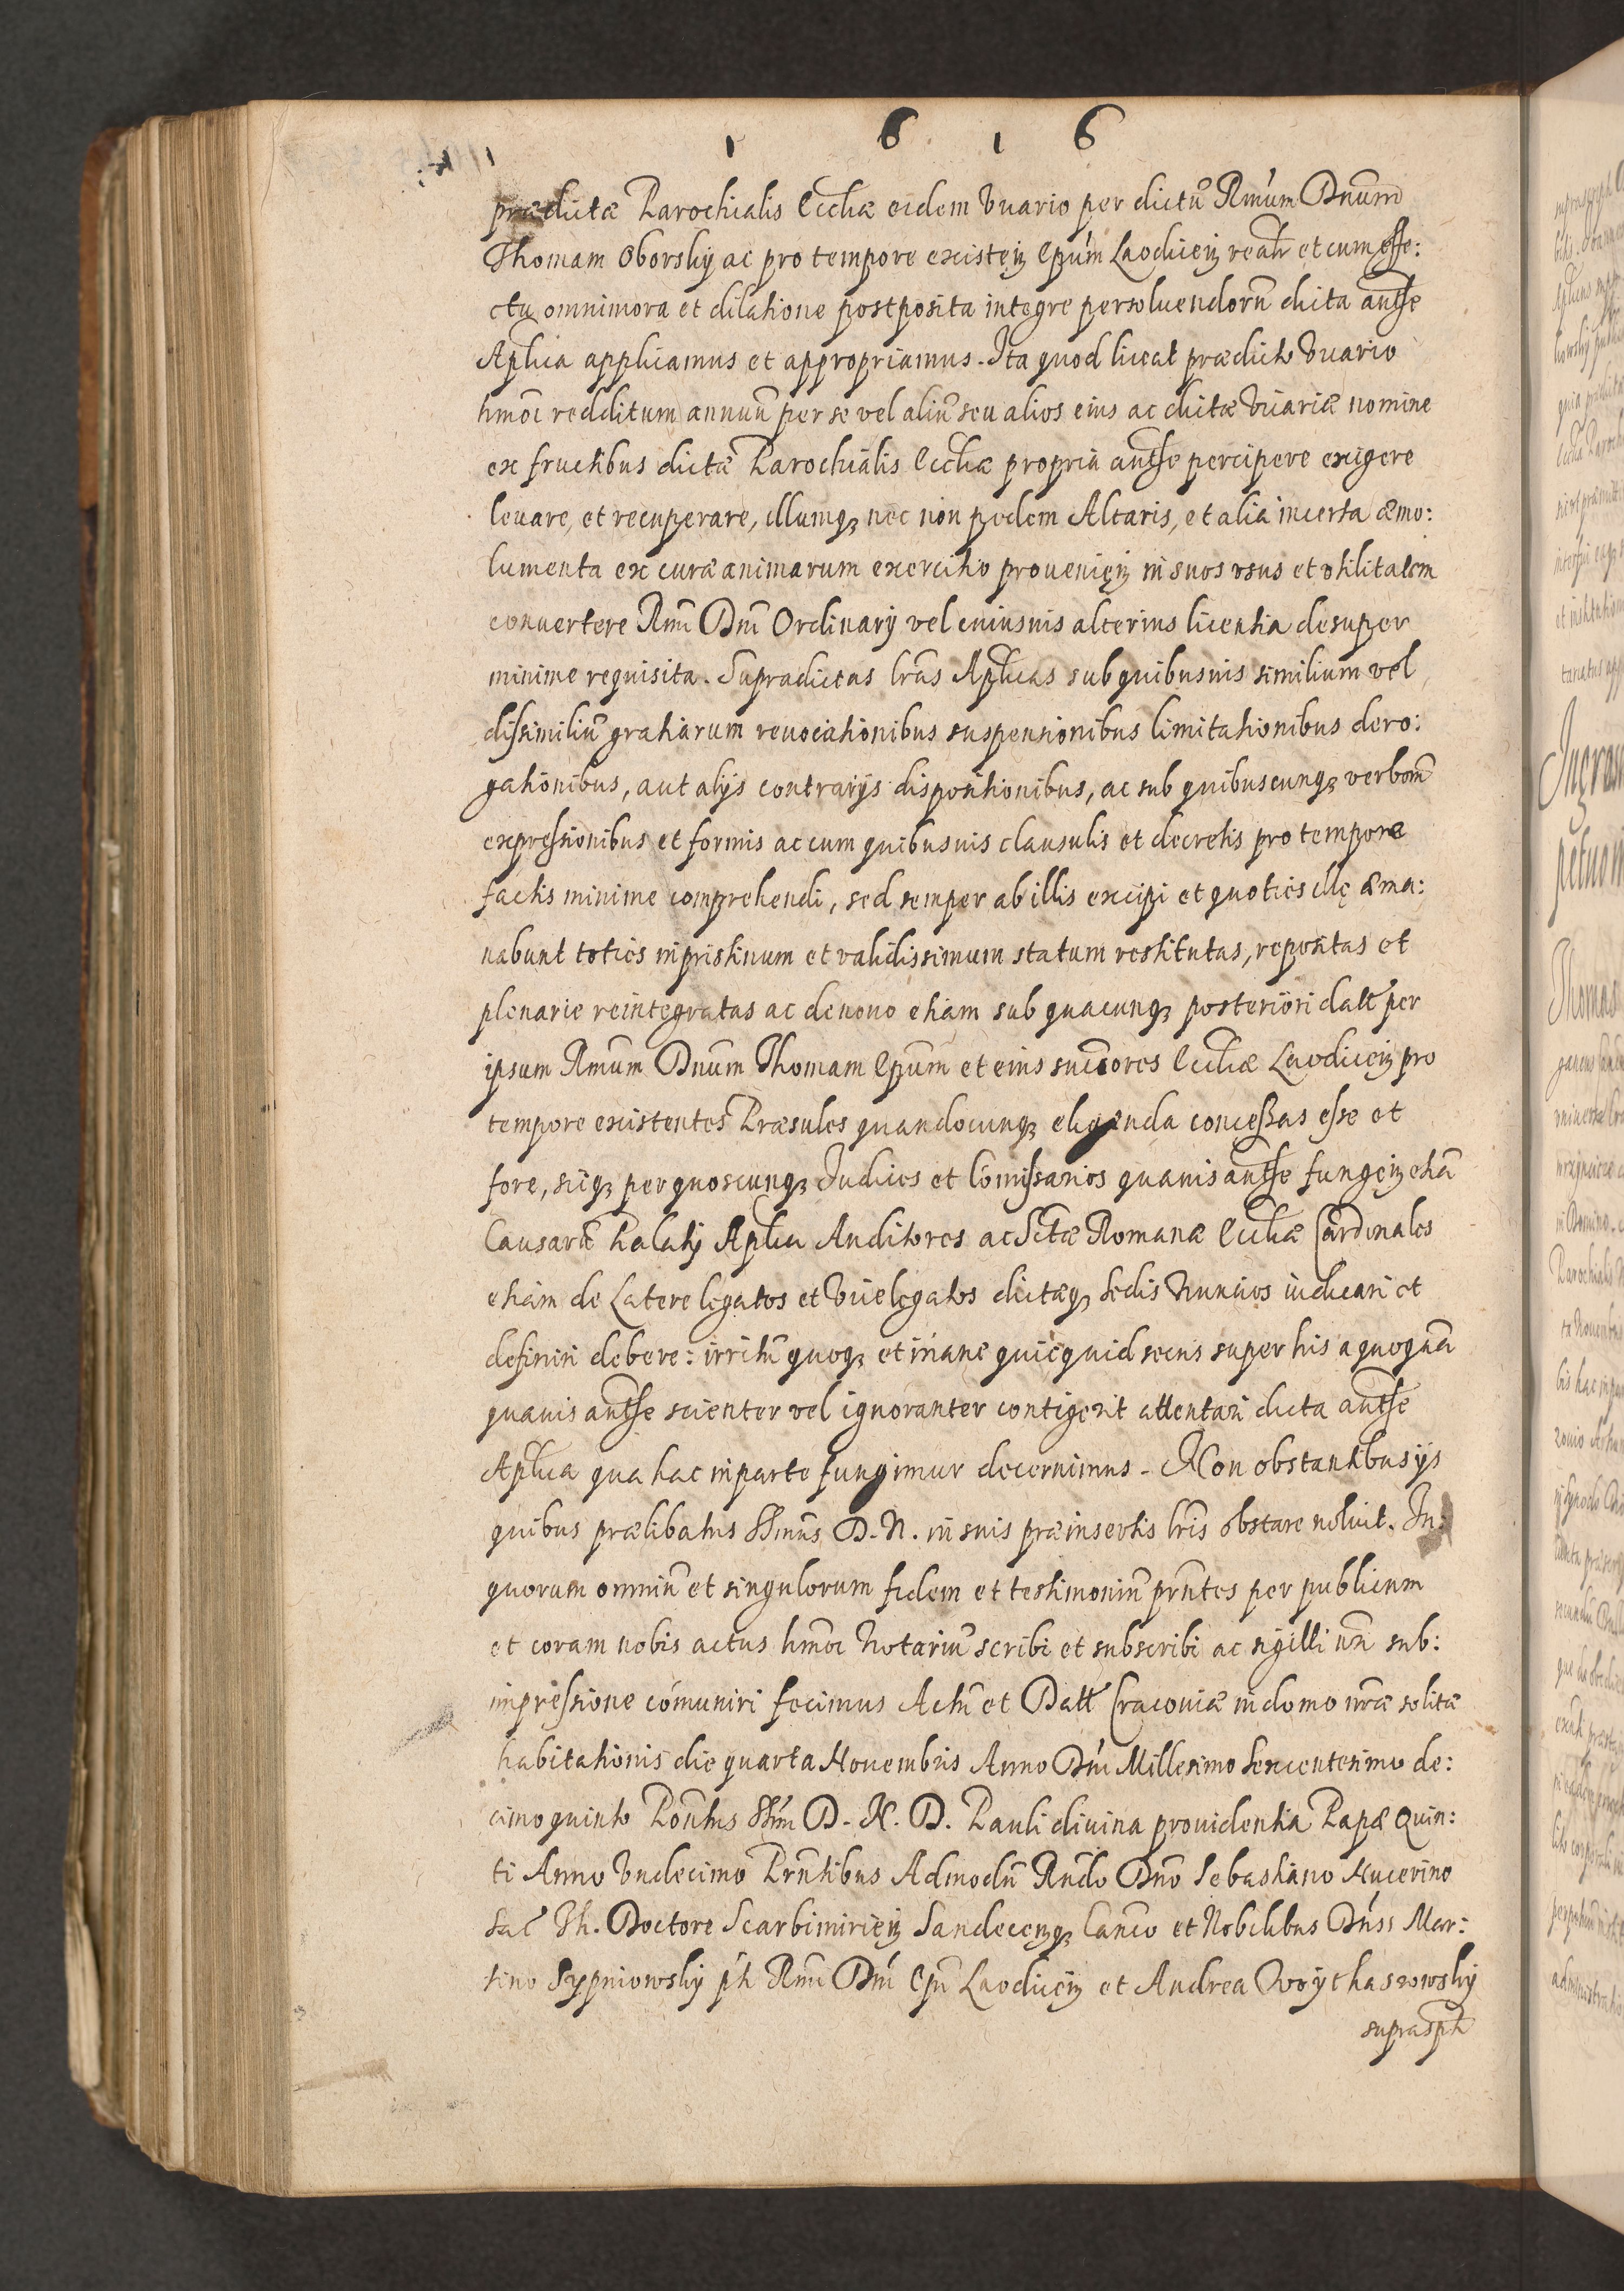 1 6 1 6
prædictæ Parochialis Eccliæ eidem Vicario per dictũ Rmũm Dnũm
Thomam Oborsky ac pro tempore existeñ Epũm Laodiceñ realr et cum effe:
ctu omni mora et dilatione postposita integre persoluendorũ dicta auctte
Aplica applicamus et appropriamus. Ita quod liceat prædicto Vicario
hmõi redditum annuũ per se vel aliũ seu alios eius ac dictæ Vicariæ nomine
ex fructibus dictæ Parochialis Eccliæ propria auctte percipere exigere
leuare, et recuperare, illumq3 nec non pedem Altaris, et alia incerta æmo:
lumenta ex curæ animarum exercitio proueniẽñ in suos vsus et vtilitatem
conuertere Rmi Dni Ordinarij vel cuiusuis alterius licentia desuper
minime requisita. Supradictas lras Aplicas sub quibusuis similium vel
dissimiliũ gratiarum reuocationibus suspensionibus limitationibus dero:
gationibus, aut alijs contrarijs dispositionibus, ac sub quibuscunq3 verborũ
expressionibus et formis ac cum quibusuis clausulis et decretis pro tempore
factis minime comprehendi, sed semper ab illis excipi et quoties illę æma:
nabunt toties in pristinum et validissimum statum restitutas, repositas et
plenarie reintegratas ac denouo etiam sub quacunq3 posteriori datt per
ipsum Rmũm Dnũm Thomam Epũm et eius succores Eccliæ Laodiceñ pro
tempore existentes Præsules quandocunq3 eligenda concessas esse et
fore, sicq3 per quoscunq3 Iudices et Comissarios quauis auctte fungeñ etiã
Causarũ Palatij Aplici Auditores ac Sctæ Romanæ Eccliæ Cardinales
etiam de Latere legatos et Vicelegatos dictæq3 Sedis Nuncios iudicari et
definiri debere: irritũ quoq3 et inane quicquid secus super his a quoquã
quauis auctte scienter vel ignoranter contigerit attentari dicta auctte
Aplica qua hac in parte fungimur decernimus. Non obstantibus ijs
quibus prælibatus SSmus D. N. in suis præinsertis lris obstare noluit. In
quorum omniũ et singulorum fidem et testimoniũ prntes per publicum
et coram nobis actus hmõi Notariũ scribi et subscribi ac sigilli nri sub:
impressione comuniri fecimus Actũ et Datt Cracouiæ in domo nræ solitæ
habitationis die quarta Nouembris Anno Dni Millesimo Sexcentesimo de:
cimo quinto Pontus SSmi D. N. D. Pauli diuina prouidentia Papæ Quin:
ti Anno Vndecimo Prntibus Admodũ Rndo Dno Sebastiano Nucerino
Sac Th. Doctore Scarbimirieñ Sandeceñq3 Canco et Nobilibus Dnis Mar:
tino Sypniowsky ph Rmi Dni Epi Laodiceñ et Andrea Woythaszowsky
suprasph